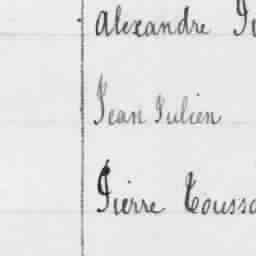 Alexandre
Jean Julien
Pierre